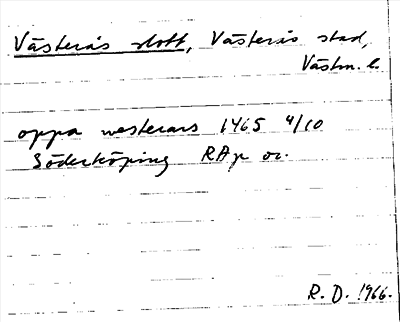 Västerås slott, Västerås stad,
Västm. l.
oppa westerars 1465 4/10
Söderköping RAp or.
R. D. 1966.